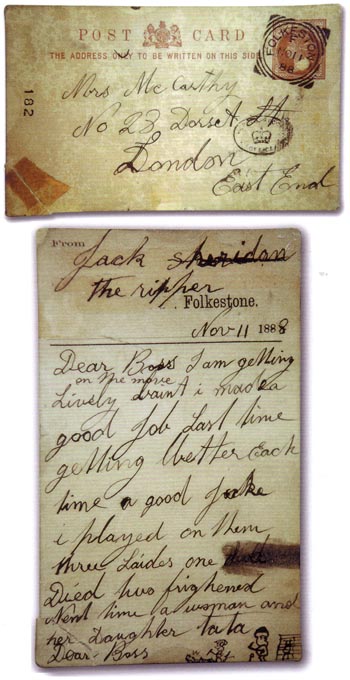 POST CARD
THE ADDRESS ONLY TO BE WRITTEN ON THIS SIDE
FOLKESTONE
F
NO 11
88
182
Mrs McCarthy
No 28 Dorset St
London
East End
From
Jack Sheridon
the ripper
Folkestone.
Nov 11 1888
Dear Boss I am getting
on the move
Lively daint i made a
good Job last time
getting better Each
time a good Joke
i played on them
three Laides one
Died two frighened
Next time a woman and
her Daughter ta ta
Dear Boss